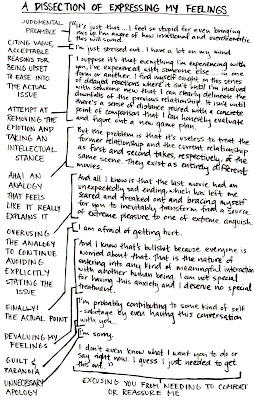 A DISSECTION OF EXPRESSING MY FEELINGS
JUDGMENTAL
PREAMBLE
CITING VAGUE,
ACCEPTABLE
REASONS FOR
BEING UPSET
TO EASE INTO
THE ACTUAL
ISSUE
ATTEMPT AT
REMOVING THE
EMOTION AND
TAKING AN
INTELLECTUAL
STANCE
AHA! AN
ANALOGY
THAT FEELS
LIKE IT REALLY
EXPLAINS IT
OVERUSING
THE ANALOGY
TO CONTINUE
AVOIDING
EXPLICITLY
STATING THE
ISSUE
FINALLY!
THE ACTUAL POINT
DEVALUING MY
FEELINGS
GUILT &
PARANOIA
UNNECESSARY
APOLOGY
"It's just that... I feel so stupid for even bringing
this up. I'm aware of how irrational and
this will sound.
I'm just stressed out. I have a lot on my mind
I suppose it's that everything I'm experiencing with
you, I've experienced with someone else... in one
form or another. I find myself caught in this series
of delayed reactions where it isn't until I'm involved
with someone new that I can clearly delineate the
downfalls of the previous relationship. It isn't until
there's a sense of distance paired with a concrete
point of comparison that I can honestly evaluate
and figure out a new game plan.
But the problem is that it's useless to treat the
former relationship and the current relationship
as first and second takes, respectively, of the
same scene. They exist as entirely different
movies.
And all I know is that the last movie had an
unexpectedly sad ending which has left me
scared and freaked out and bracing myself
for you to inevitably transform from a source
of extreme pleasure to one of extreme anguish.
I am afraid of getting hurt.
And I know that's bullshit because everyone is
worried about that. That is the nature of
entering into any kind of meaningful interaction
with another human being. I am not special
for having this anxiety and I deserve no special
treatment.
I'm probably contributing to some kind of self
-sabotage by even having this conversation
with you.
I'm sorry.
I don't even know what I want you to do or
say right now. I guess I just needed to get
this out."
EXCUSING YOU FROM NEEDING TO COMFORT
OR REASSURE ME